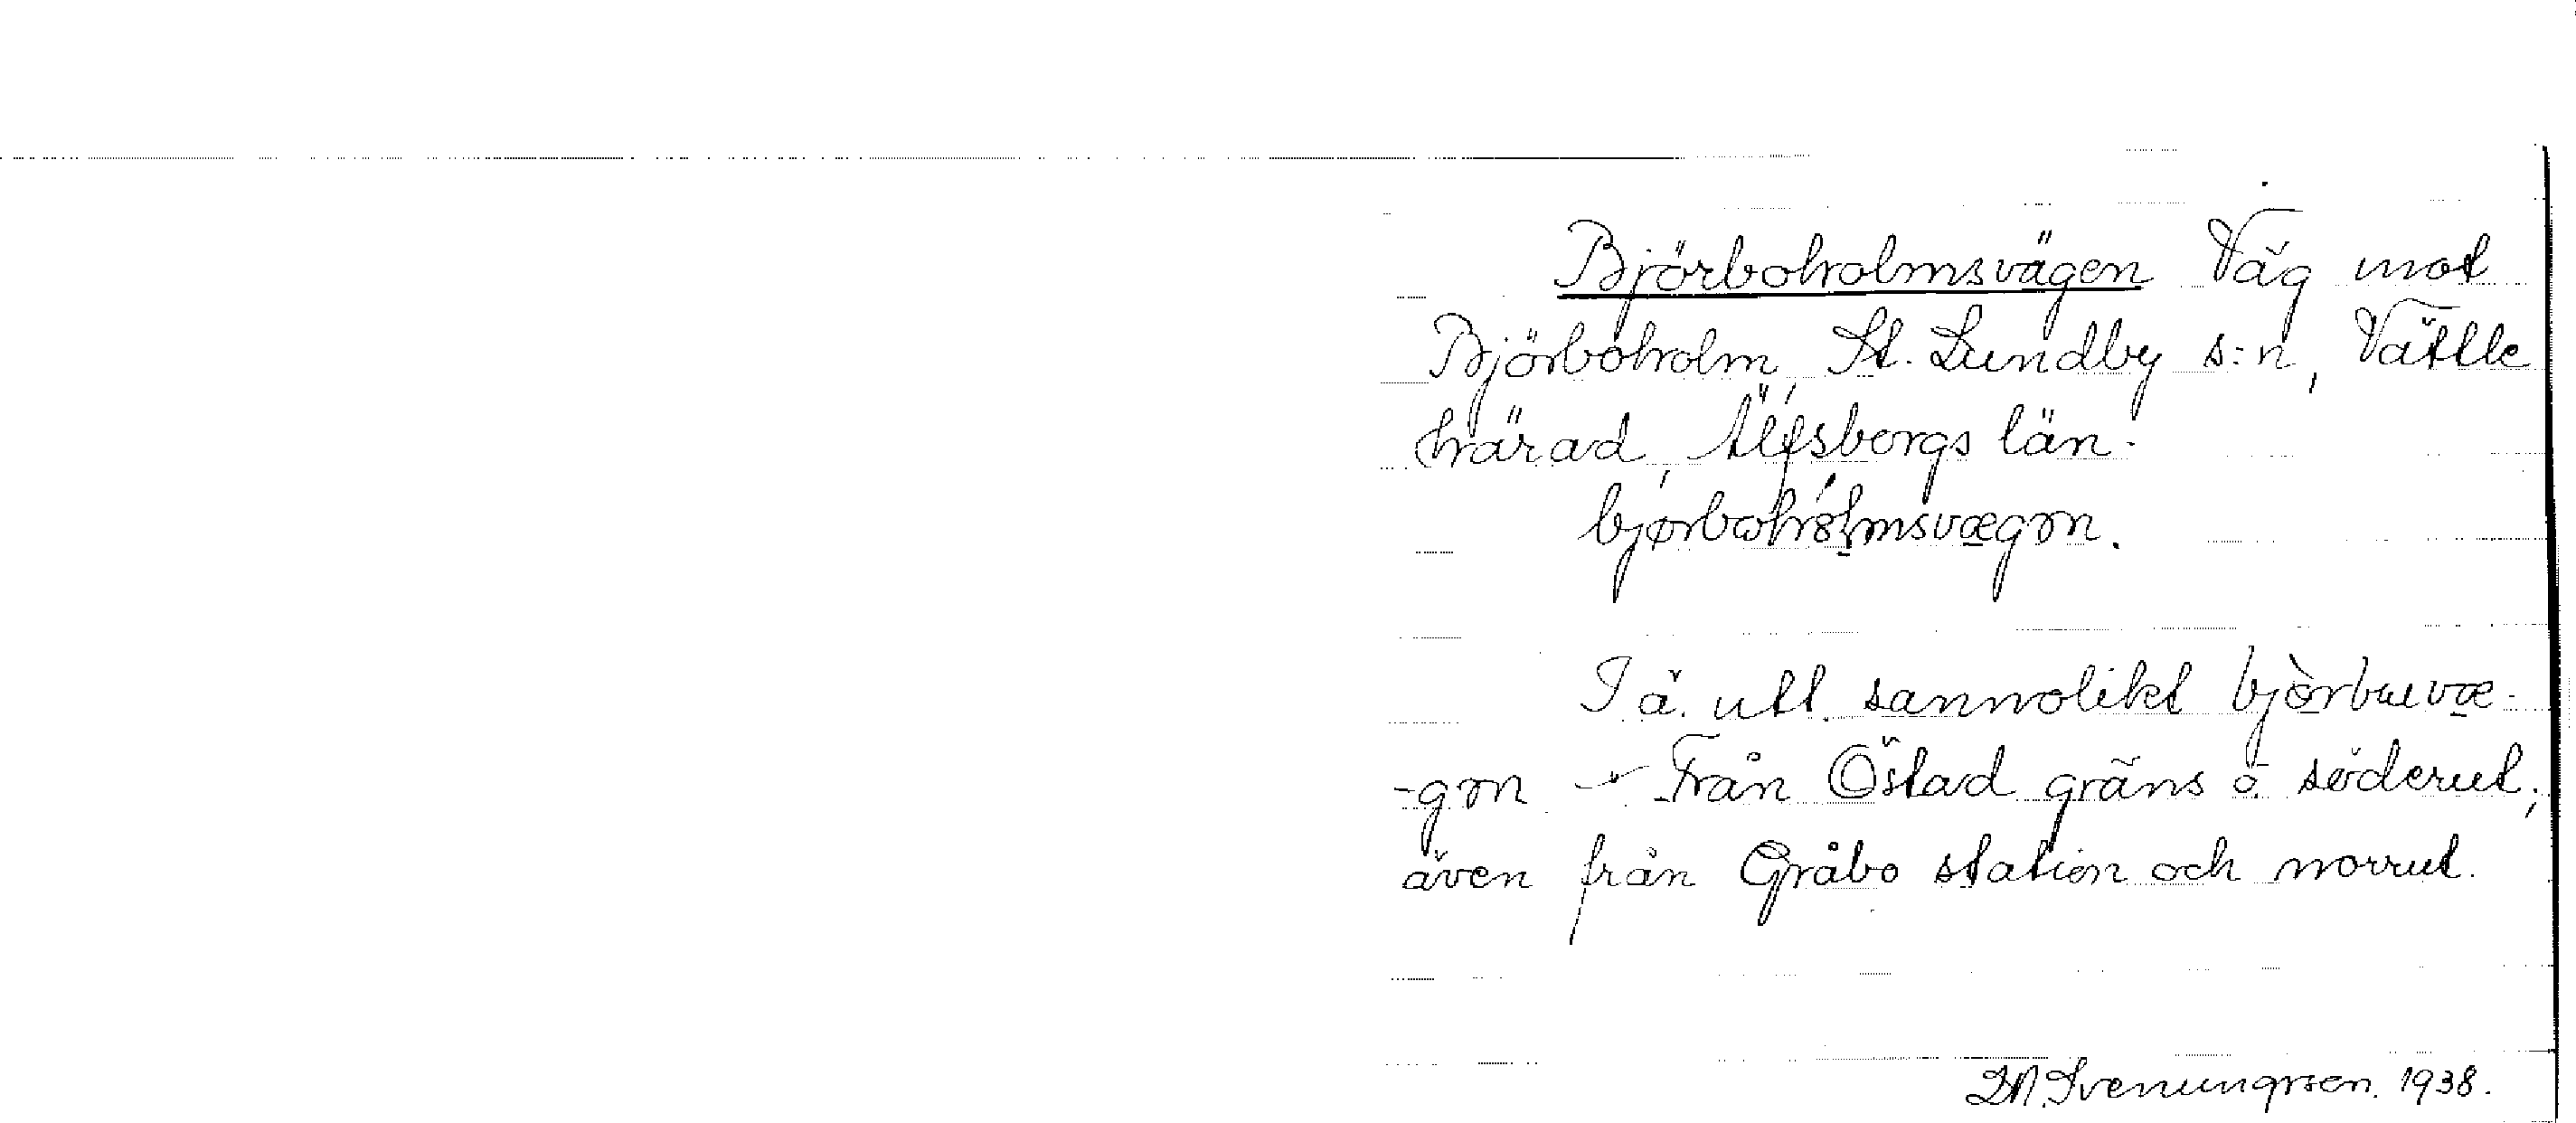 Björboholmsvägen Väg mot
Björboholm, St. Lundby s:n, Vättle
härad, Älfsborgs län.
bjørboholmsvægən.
I ä. utt. sannolikt bjòrbωvæ-
-gən - Från Östad gräns å söderut;
även från Gråbo station och norrut.
Svenungsson. 1938.